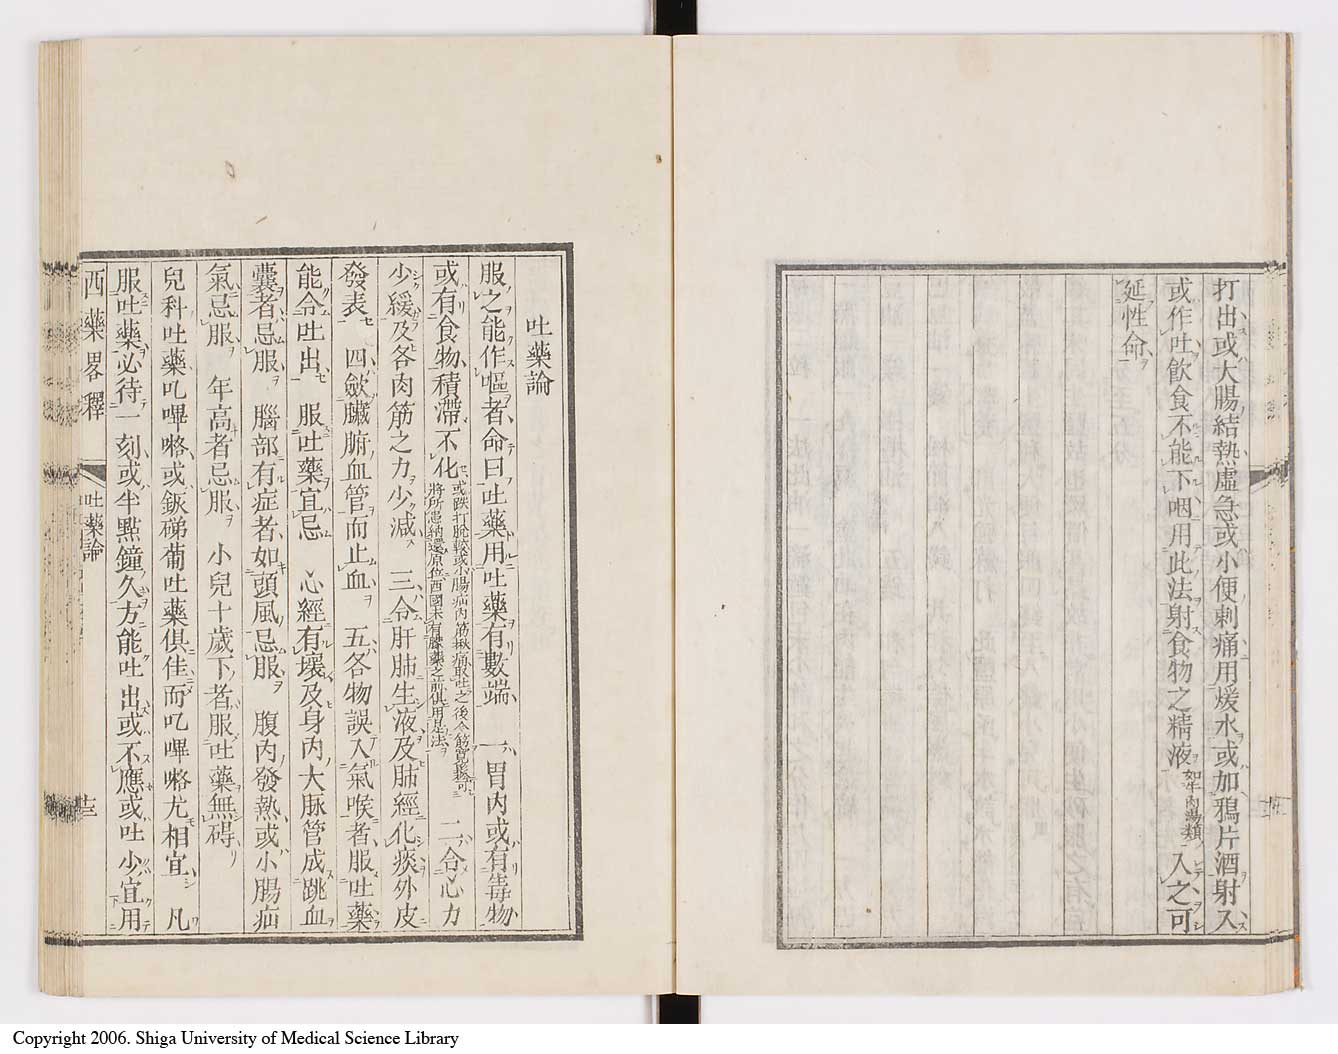 打出或大腸結熱虛急或小便刺痛用煖水或加鴉片酒射入
或作吐飲食不能下咽用此法射食物之精液如牛肉湯類入之可
延性命
吐藥論
服之能作嘔者命曰吐藥用吐藥有數端 一胃內或有毒物
或有食物積滯不化或跌打脫骹或小腸疝內筋揪痛取吐之後令筋寬鬆可將所患納還原位西國未有矇藥之前俱用是法 二令心力
少緩及各肉筋之力少減 三令肝肺生液及肺經化痰外皮
發表 四歛臟腑血管而止血 五各物誤入氣喉者服吐藥
能令吐出 服吐藥宜忌 心經有壞及身內大脉管成跳血
囊者忌服 腦部有症者如頭風忌服 腹內發熱或小腸疝
氣忌服 年高者忌服 小兒十歲下者服吐藥無碍
兒科吐藥叱嗶咯或鈲硑葡吐藥俱佳而叱嗶咯尤相宜 凡
服吐藥必待一刻或半點鐘久方能吐出或不應或吐少宜用
西藥畧釋
吐藥論
十三
Copyright 2006. Shiga University of Medical Science Library